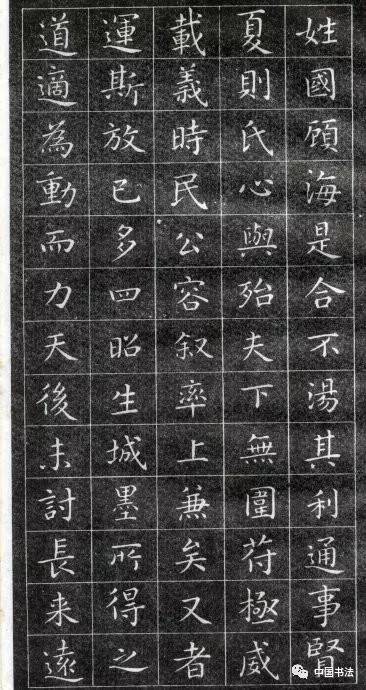 姓國顧海是合不湯其利通事賢
夏則氏心與殆夫下無圍苻極威
載義時民公容叙率上兼矣又者
運斯放已多四昭生城墨所得之
道適為動而力天後未討長来遠
中国书法